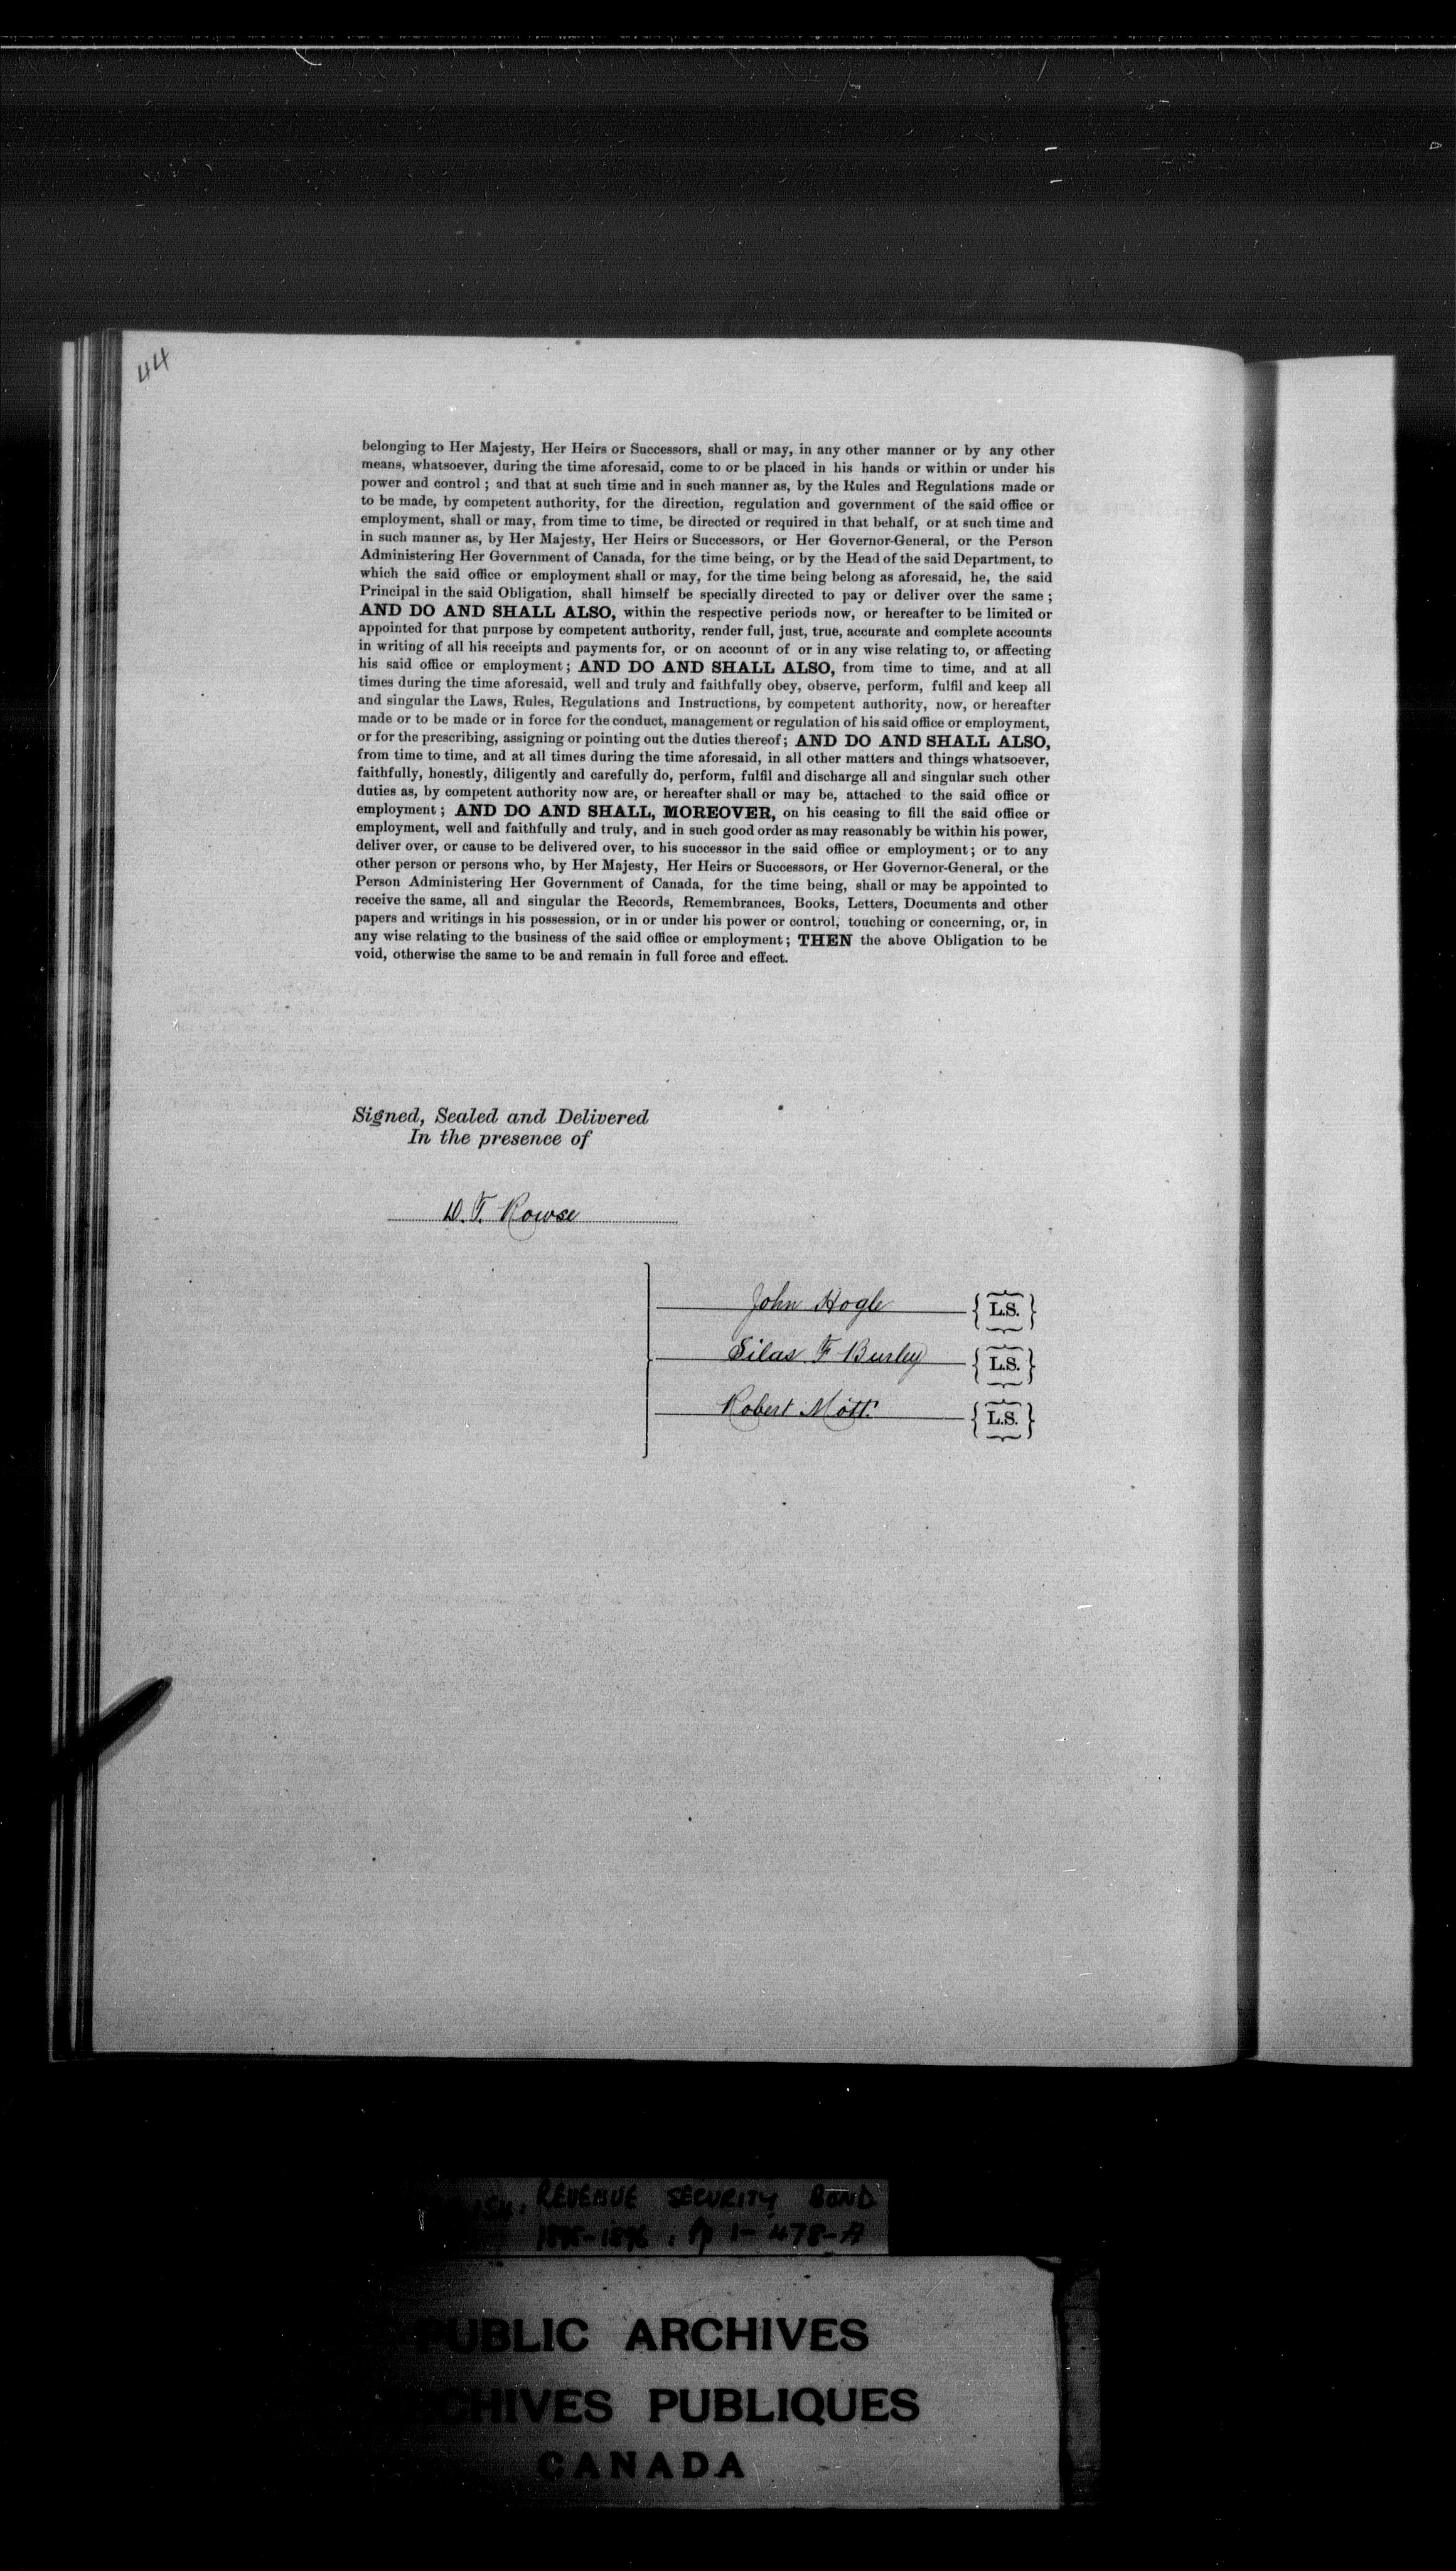 44
belonging to Her Majesty, Her Heirs or Successors, shall or may, in any other manner or by any other
means, whatsoever, during the time aforesaid, come to or be placed in his hands or within or under his
power and control ; and that at such time and in such manner as, by the Rules and Regulations made or
to be made, by competent authority, for the direction, regulation and government of the said office or
employment, shall or may, from time to time, be directed or required in that behalf, or at such time and
in such manner as, by Her Majesty, Her Heirs or Successors, or Her Governor-General, or the Person
Administering Her Government of Canada, for the time being, or by the Head of the said Department, to
which the said office or employment shall or may, for the time being belong as aforesaid, he, the said
Principal in the said Obligation, shall himself be specially directed to pay or deliver over the same ;
AND DO AND SHALL ALSO, within the respective periods now, or hereafter to be limited or
appointed for that purpose by competent authority, render full, just, true, accurate and complete accounts
in writing of all his receipts and payments for, or on account of or in any wise relating to, or affecting
his said office or employment ; AND DO AND SHALL ALSO, from time to time, and at all
times during the time aforesaid, well and truly and faithfully obey, observe, perform, fulfil and keep all
and singular the Laws, Rules, Regulations and Instructions, by competent authority, now, or hereafter
made or to be made or in force for the conduct, management or regulation of his said office or employment,
or for the prescribing, assigning or pointing out the duties thereof ; AND DO AND SHALL ALSO,
from time to time, and at all times during the time aforesaid, in all other matters and things whatsoever,
faithfully, honestly, diligently and carefully do, perform, fulfil and discharge all and singular such other
duties as, by competent authority now are, or hereafter shall or may be, attached to the said office or
employment ; AND DO AND SHALL, MOREOVER, on his ceasing to fill the said office or
employment, well and faithfully and truly, and in such good order as may reasonably be within his power,
deliver over, or cause to be delivered over, to his successor in the said office or employment ; or to any
other person or persons who, by Her Majesty, Her Heirs or Successors, or Her Governor-General, or the
Person Administering Her Government of Canada, for the time being, shall or may be appointed to
receive the same, all and singular the Records, Remembrances, Books, Letters, Documents and other
papers and writings in his possession, or in or under his power or control, touching or concerning, or, in
any wise relating to the business of the said office or employment ; THEN the above Obligation to be
void, otherwise the same to be and remain in full force and effect.
Signed, Sealed and Delivered
In the presence of
D. F. Rowse
John Hogle {L.S.}
Silas F Burley {L.S.}
Robert Mott {L.S.}
REVENUE SECURITY BOND
1-478-A
PUBLIC ARCHIVES
ARCHIVES PUBLIQUES
CANADA